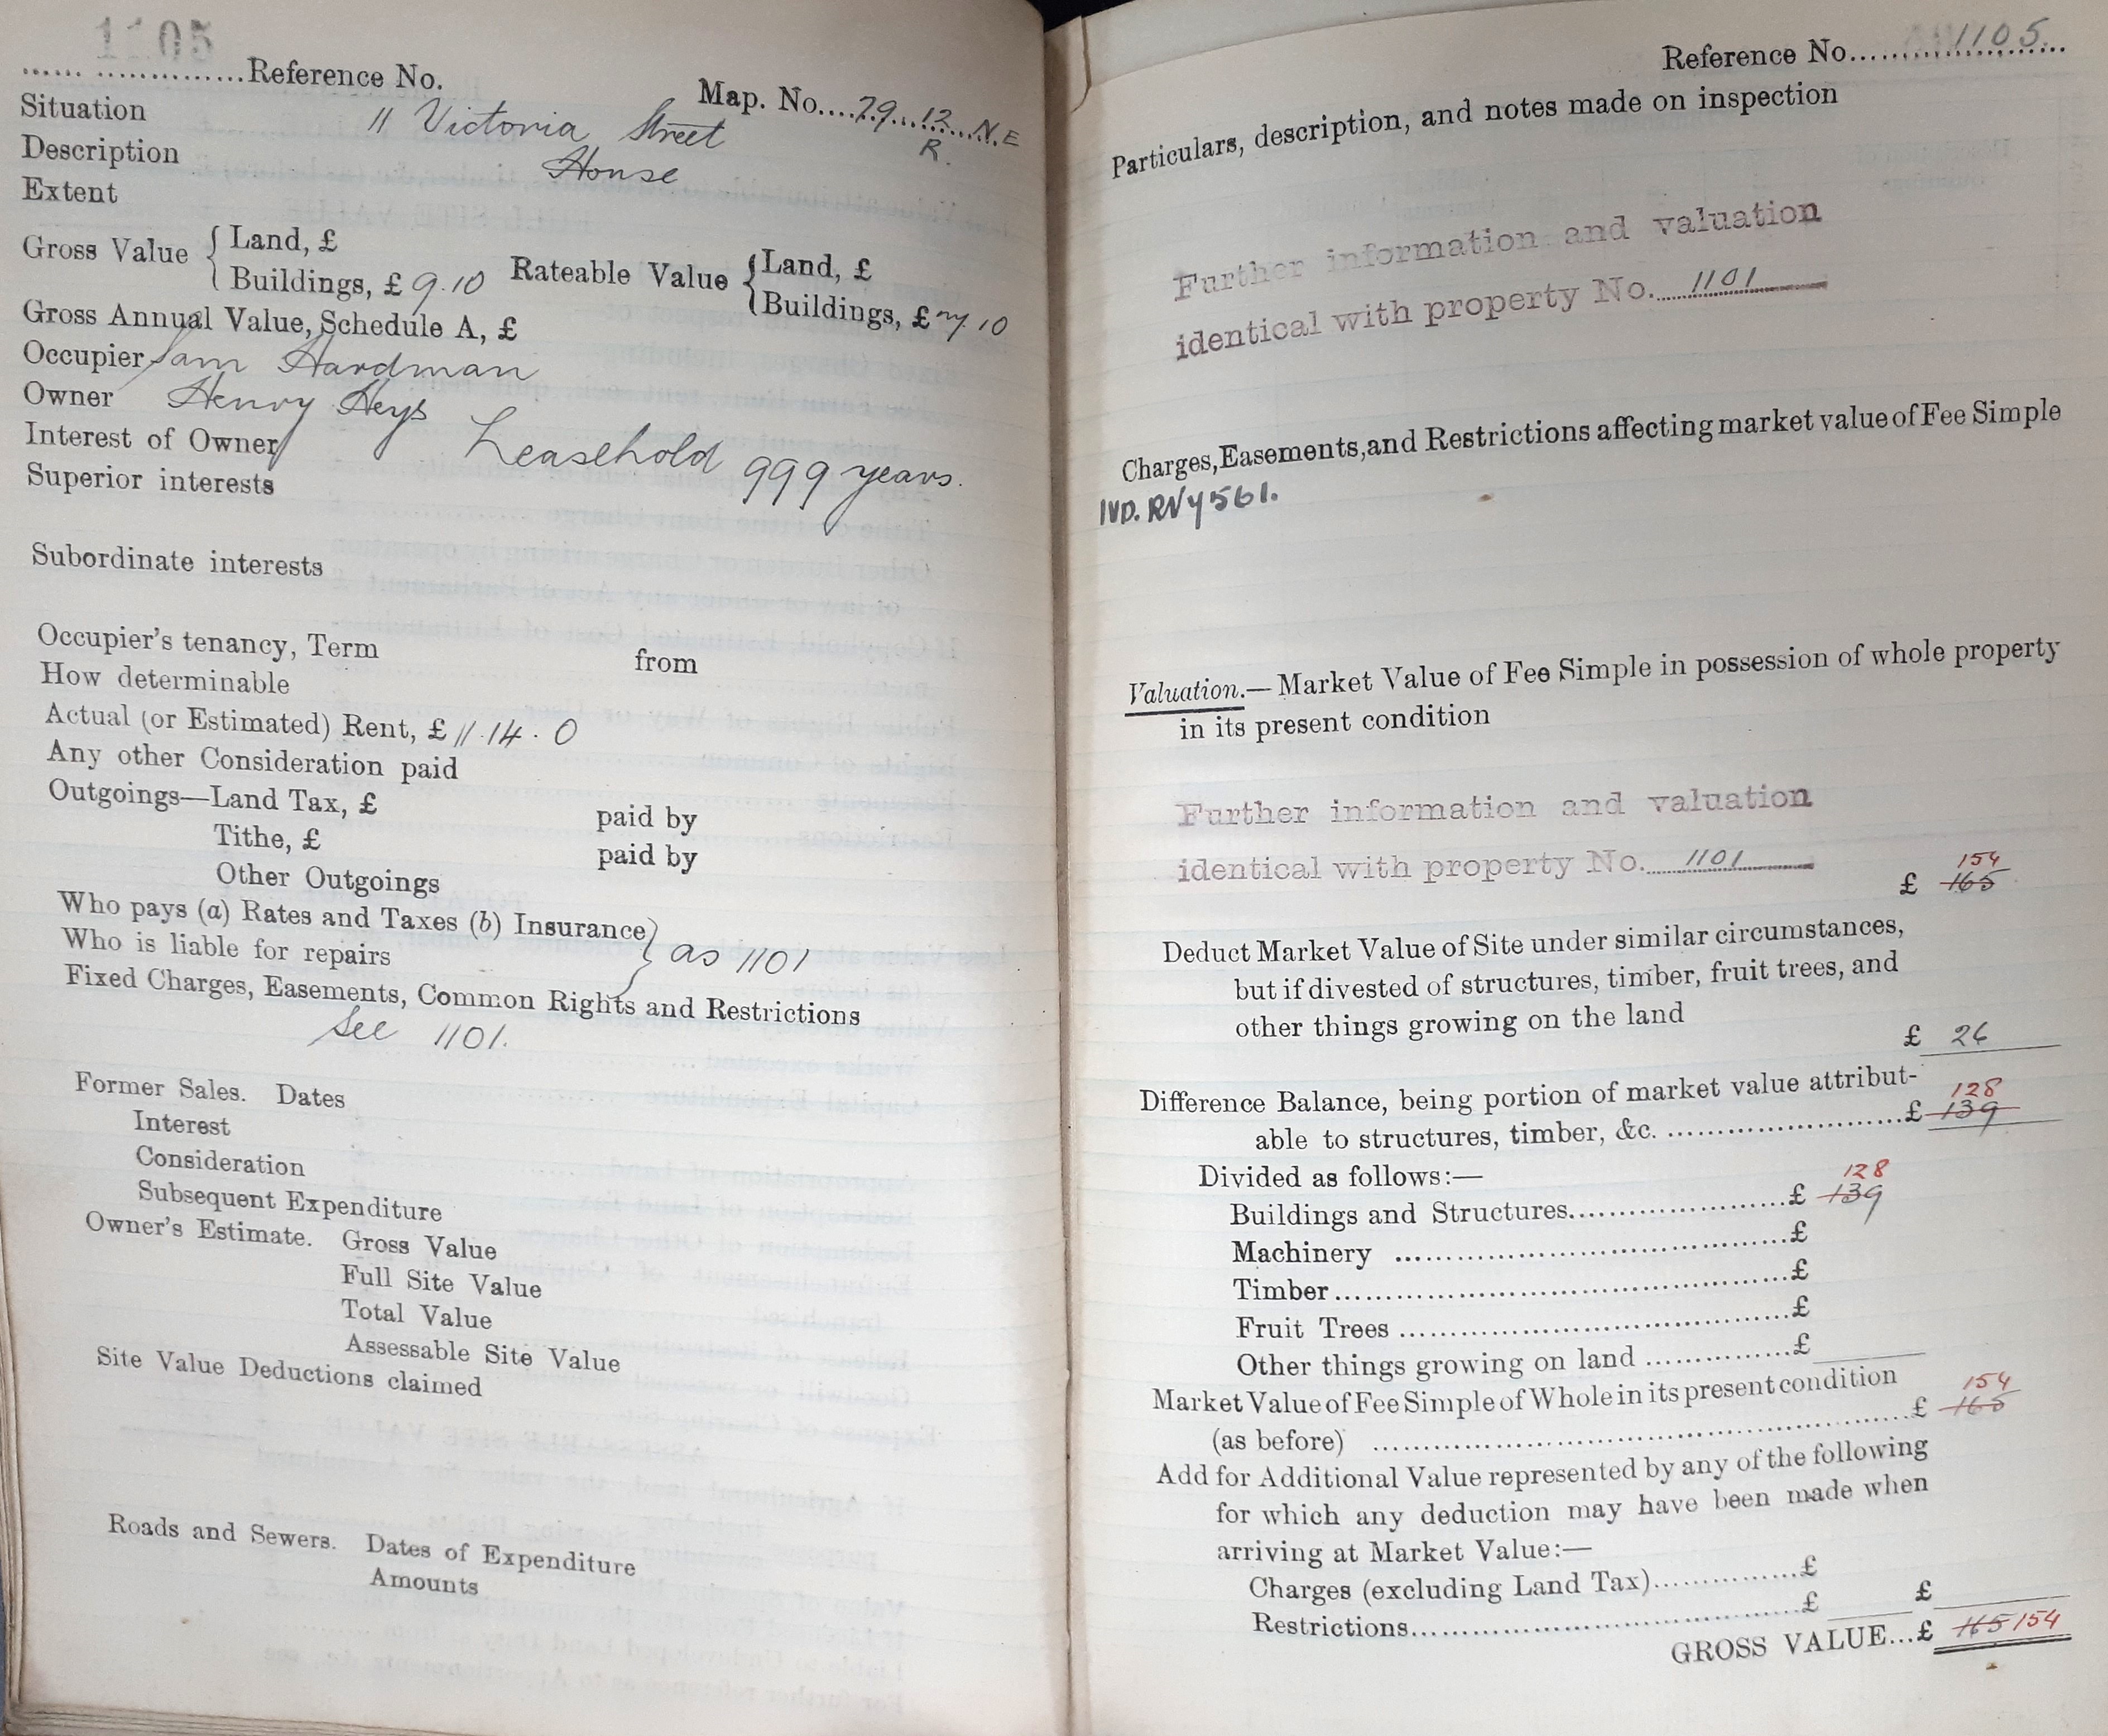 1105
...... ...............Reference No.
Map. No....79...12...N.E
R.
Situation 11 Victoria Street
Description House
Extent
Gross Value { Land, £
Buildings, £ 9.10
Rateable Value { Land, £
Buildings, £ 7.10
Gross Annual Value, Schedule A, £
Occupier Sam Hardman
Owner Henry Heys
Interest of Owner Leasehold 999 years.
Superior interests
Subordinate interests
Occupier's tenancy, Term from
How determinable
Actual (or Estimated) Rent, £ 11.14.0
Any other Consideration paid
Outgoings—Land Tax, £ paid by
Tithe, £ paid by
Other Outgoings
Who pays (a) Rates and Taxes (b) Insurance }
Who is liable for repairs } as 1101
Fixed Charges, Easements, Common Rights and Restrictions
See 1101.
Former Sales. Dates
Interest
Consideration
Subsequent Expenditure
Owner's Estimate. Gross Value
Full Site Value
Total Value
Assessable Site Value
Site Value Deductions claimed
Roads and Sewers. Dates of Expenditure
Amounts
Reference No......1105......
Particulars, description, and notes made on inspection
Further information and valuation
identical with property No. 1101
Charges, Easements, and Restrictions affecting market value of Fee Simple
IVD. RNY561.
Valuation.—Market Value of Fee Simple in possession of whole property
in its present condition
Further information and valuation
identical with property No. 1101
154
£ 165
Deduct Market Value of Site under similar circumstances,
but if divested of structures, timber, fruit trees, and
other things growing on the land
£ 26
Difference Balance, being portion of market value attribut-
128
able to structures, timber, &c. ........................£ 139
Divided as follows:—
128
Buildings and Structures.....................£ 139
Machinery .....................................£
Timber..........................................£
Fruit Trees ....................................£
Other things growing on land ...............£
Market Value of Fee Simple of Whole in its present condition
154
(as before) ..................................................£ 165
Add for Additional Value represented by any of the following
for which any deduction may have been made when
arriving at Market Value:—
Charges (excluding Land Tax)...............£
Restrictions.....................................£ £
GROSS VALUE...£ 165 154